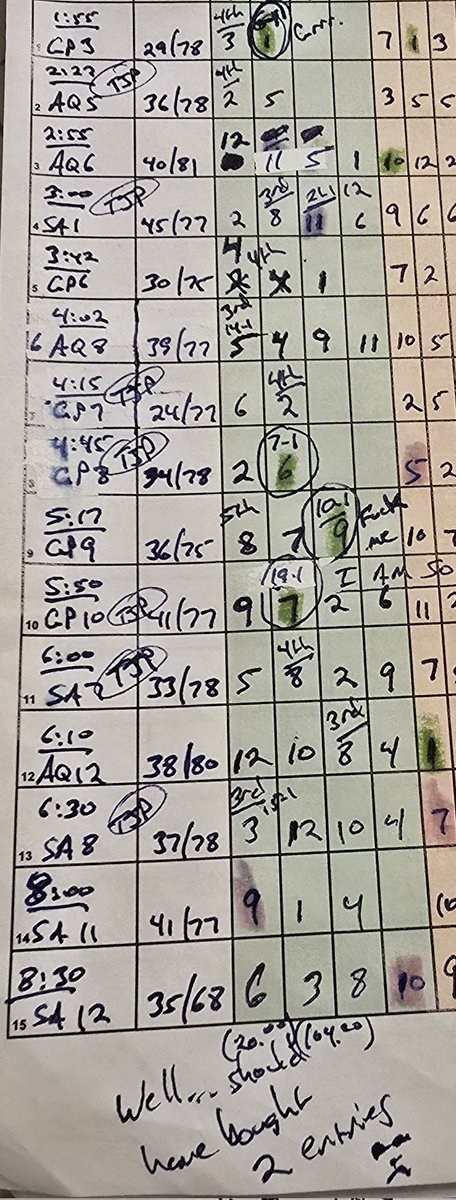 1:55 4th 6-1
1 CP3 29/78 3 1 Grrr. 7 1 3
2:23 TJP 4th
2 AQ5 36/78 2 5 3 5 5
2:55 12
3 AQ6 40/81 11 5 1 10 12 2
3:00 TJP 3rd 2nd 12
4 SA1 45/77 2 8 11 6 9 6 6
3:42 4 4th
5 CP6 30/75 1 7 2
4:02 3rd
6 AQ8 39/77 5 4 9 11 10 5
4:15 TJP 4th
7 CP7 24/77 6 2 2 5
4:45 TJP 7-1
8 CP8 34/78 2 6 5 2
5:17 5th 10-1 Fuck
9 CP9 36/75 8 7 9 me 10 7
5:50 19-1 I AM SO
10 CP10 TJP 41/77 9 7 2 6 11 2
6:00 TJP 4th
11 SA7 33/78 5 8 2 9 7
6:10 3rd
12 AQ12 38/80 12 10 8 4 1
6:30 TJP 3rd
13 SA8 37/78 3 12 10 4 7
8:00
14 SA11 41/77 9 1 4
8:30
15 SA12 35/68 6 3 8 10 9
(20.00) (104.20)
Well... should
have bought
2 entries